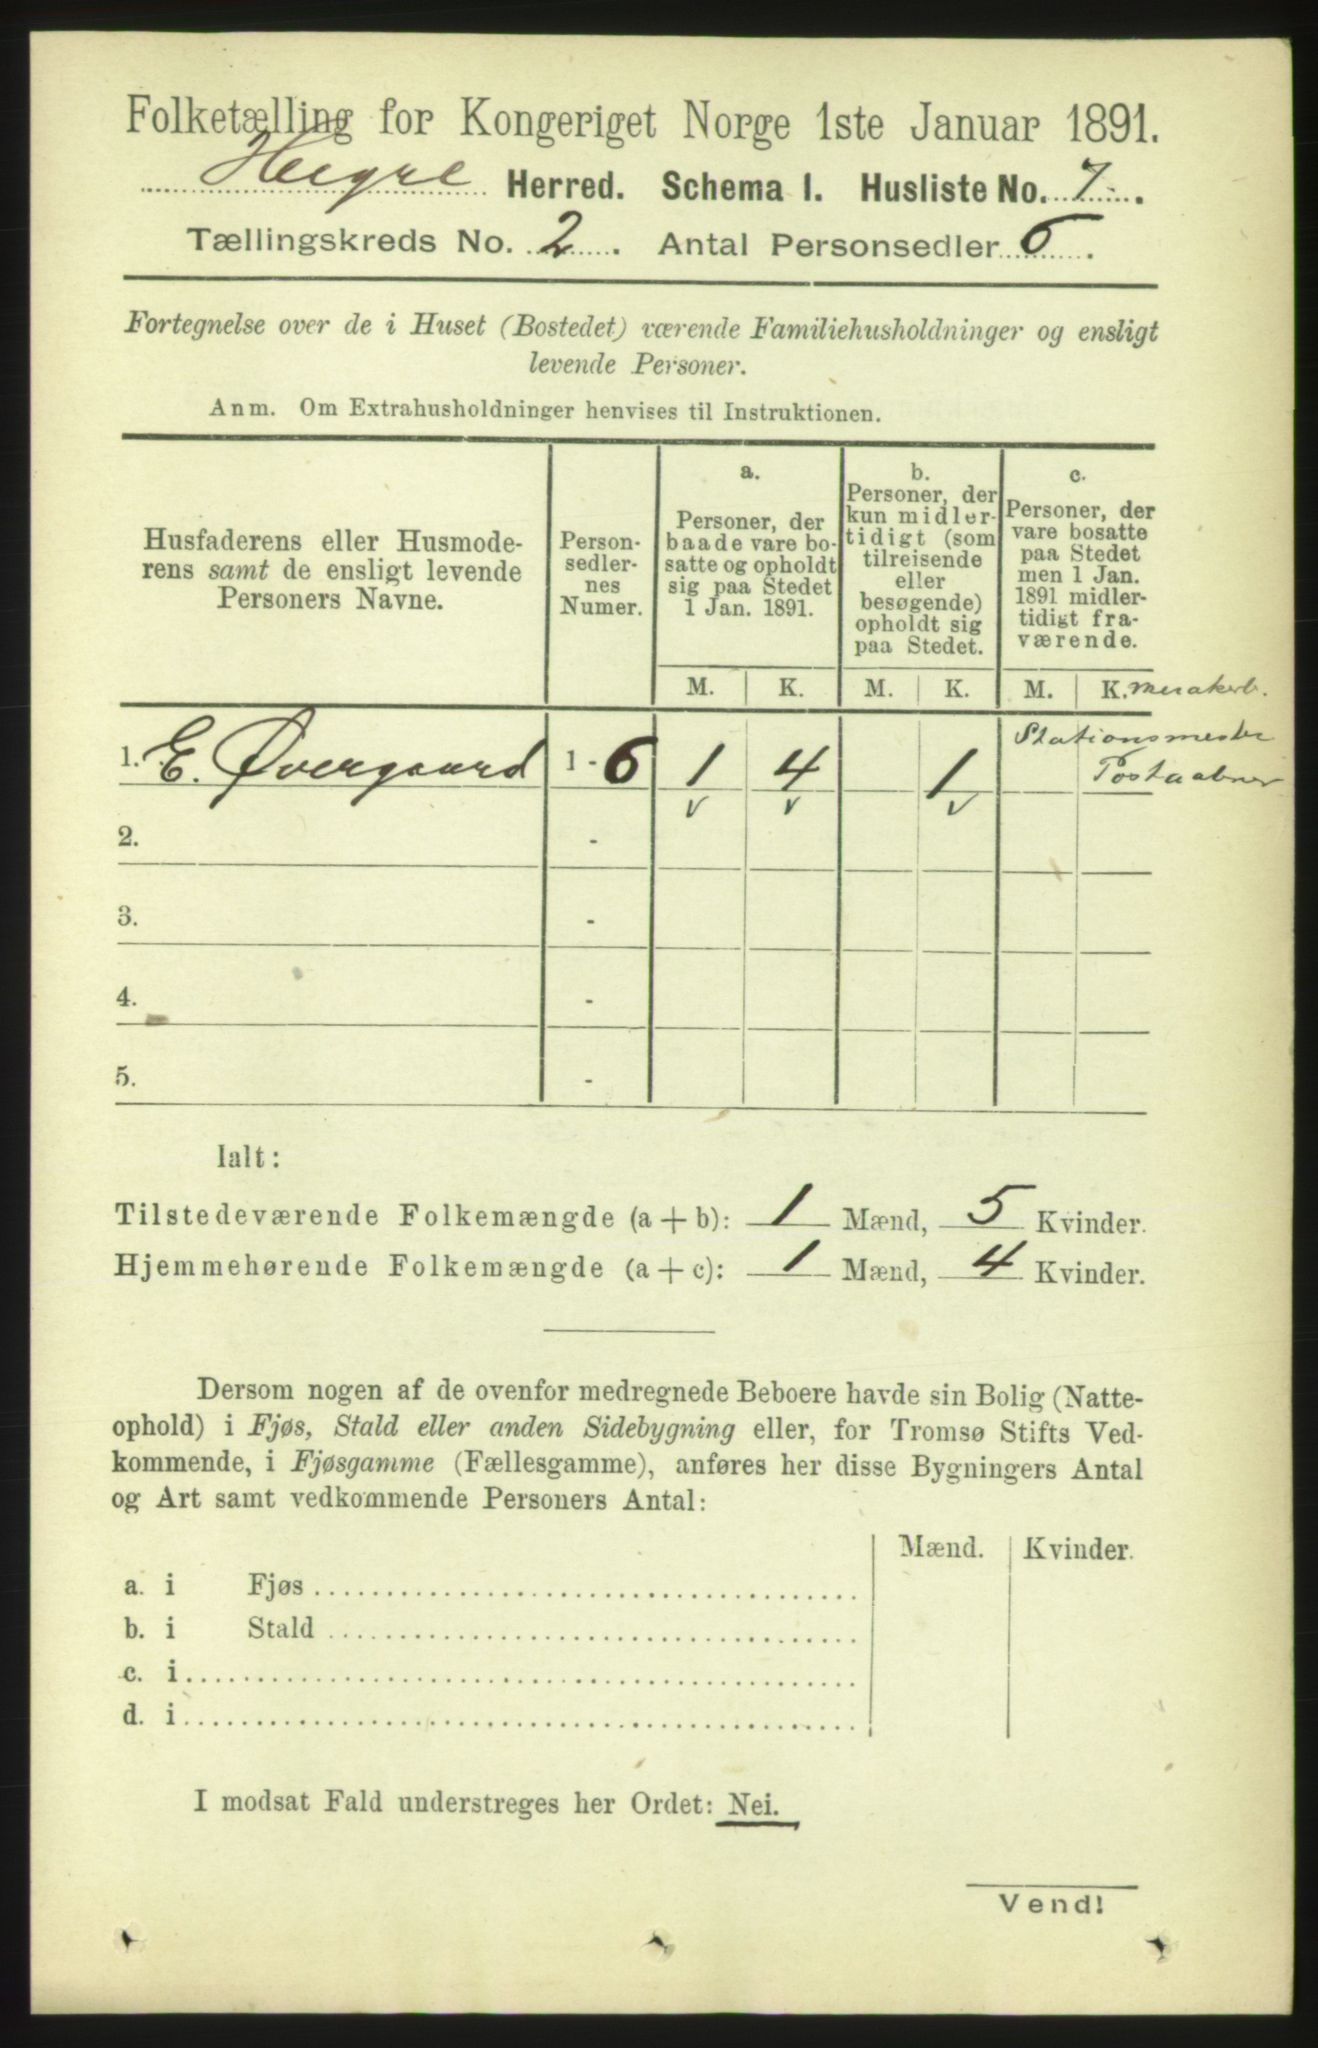 Folketælling for Kongeriget Norge 1ste Januar 1891.
Hegre Herred. Schema 1. Husliste No. 7.
Tællingskreds No. 2. Antal Personsedler 6.
Fortegnelse over de i Huset (Bostedet) værende Familiehusholdninger og ensligt
levende Personer.
Anm. Om Extrahusholdninger henvises til Instruktionen.
Husfaderens eller Husmode-
rens samt de ensligt levende
Personers Navne.
Person-
sedler-
nes
Numer.
a.
Personer, der
baade vare bo-
satte og opholdt
sig paa Stedet
1 Jan. 1891.
b.
Personer, der
kun midler-
tidigt (som
tilreisende
eller
besøgende)
opholdt sig
paa Stedet.
c.
Personer, der
vare bosatte
paa Stedet
men 1 Jan.
1891 midler-
tidigt fra-
værende.
M. K. M. K. M. K. Merakerb.
Stationsmester
Postaabner
1. E. Øvergaard 1 - 6 1 4 1
v v v
2. -
3. -
4. -
5. -
Ialt:
Tilstedeværende Folkemængde (a + b): 1 Mænd, 5 Kvinder.
Hjemmehørende Folkemængde (a + c): 1 Mænd, 4 Kvinder.
Dersom nogen af de ovenfor medregnede Beboere havde sin Bolig (Natte-
ophold) i Fjøs, Stald eller anden Sidebygning eller, for Tromsø Stifts Ved-
kommende, i Fjøsgamme (Fællesgamme), anføres her disse Bygningers Antal
og Art samt vedkommende Personers Antal:
Mænd. Kvinder.
a. i Fjøs
b. i Stald
c. i
d. i
I modsat Fald understreges her Ordet: Nei.
Vend!